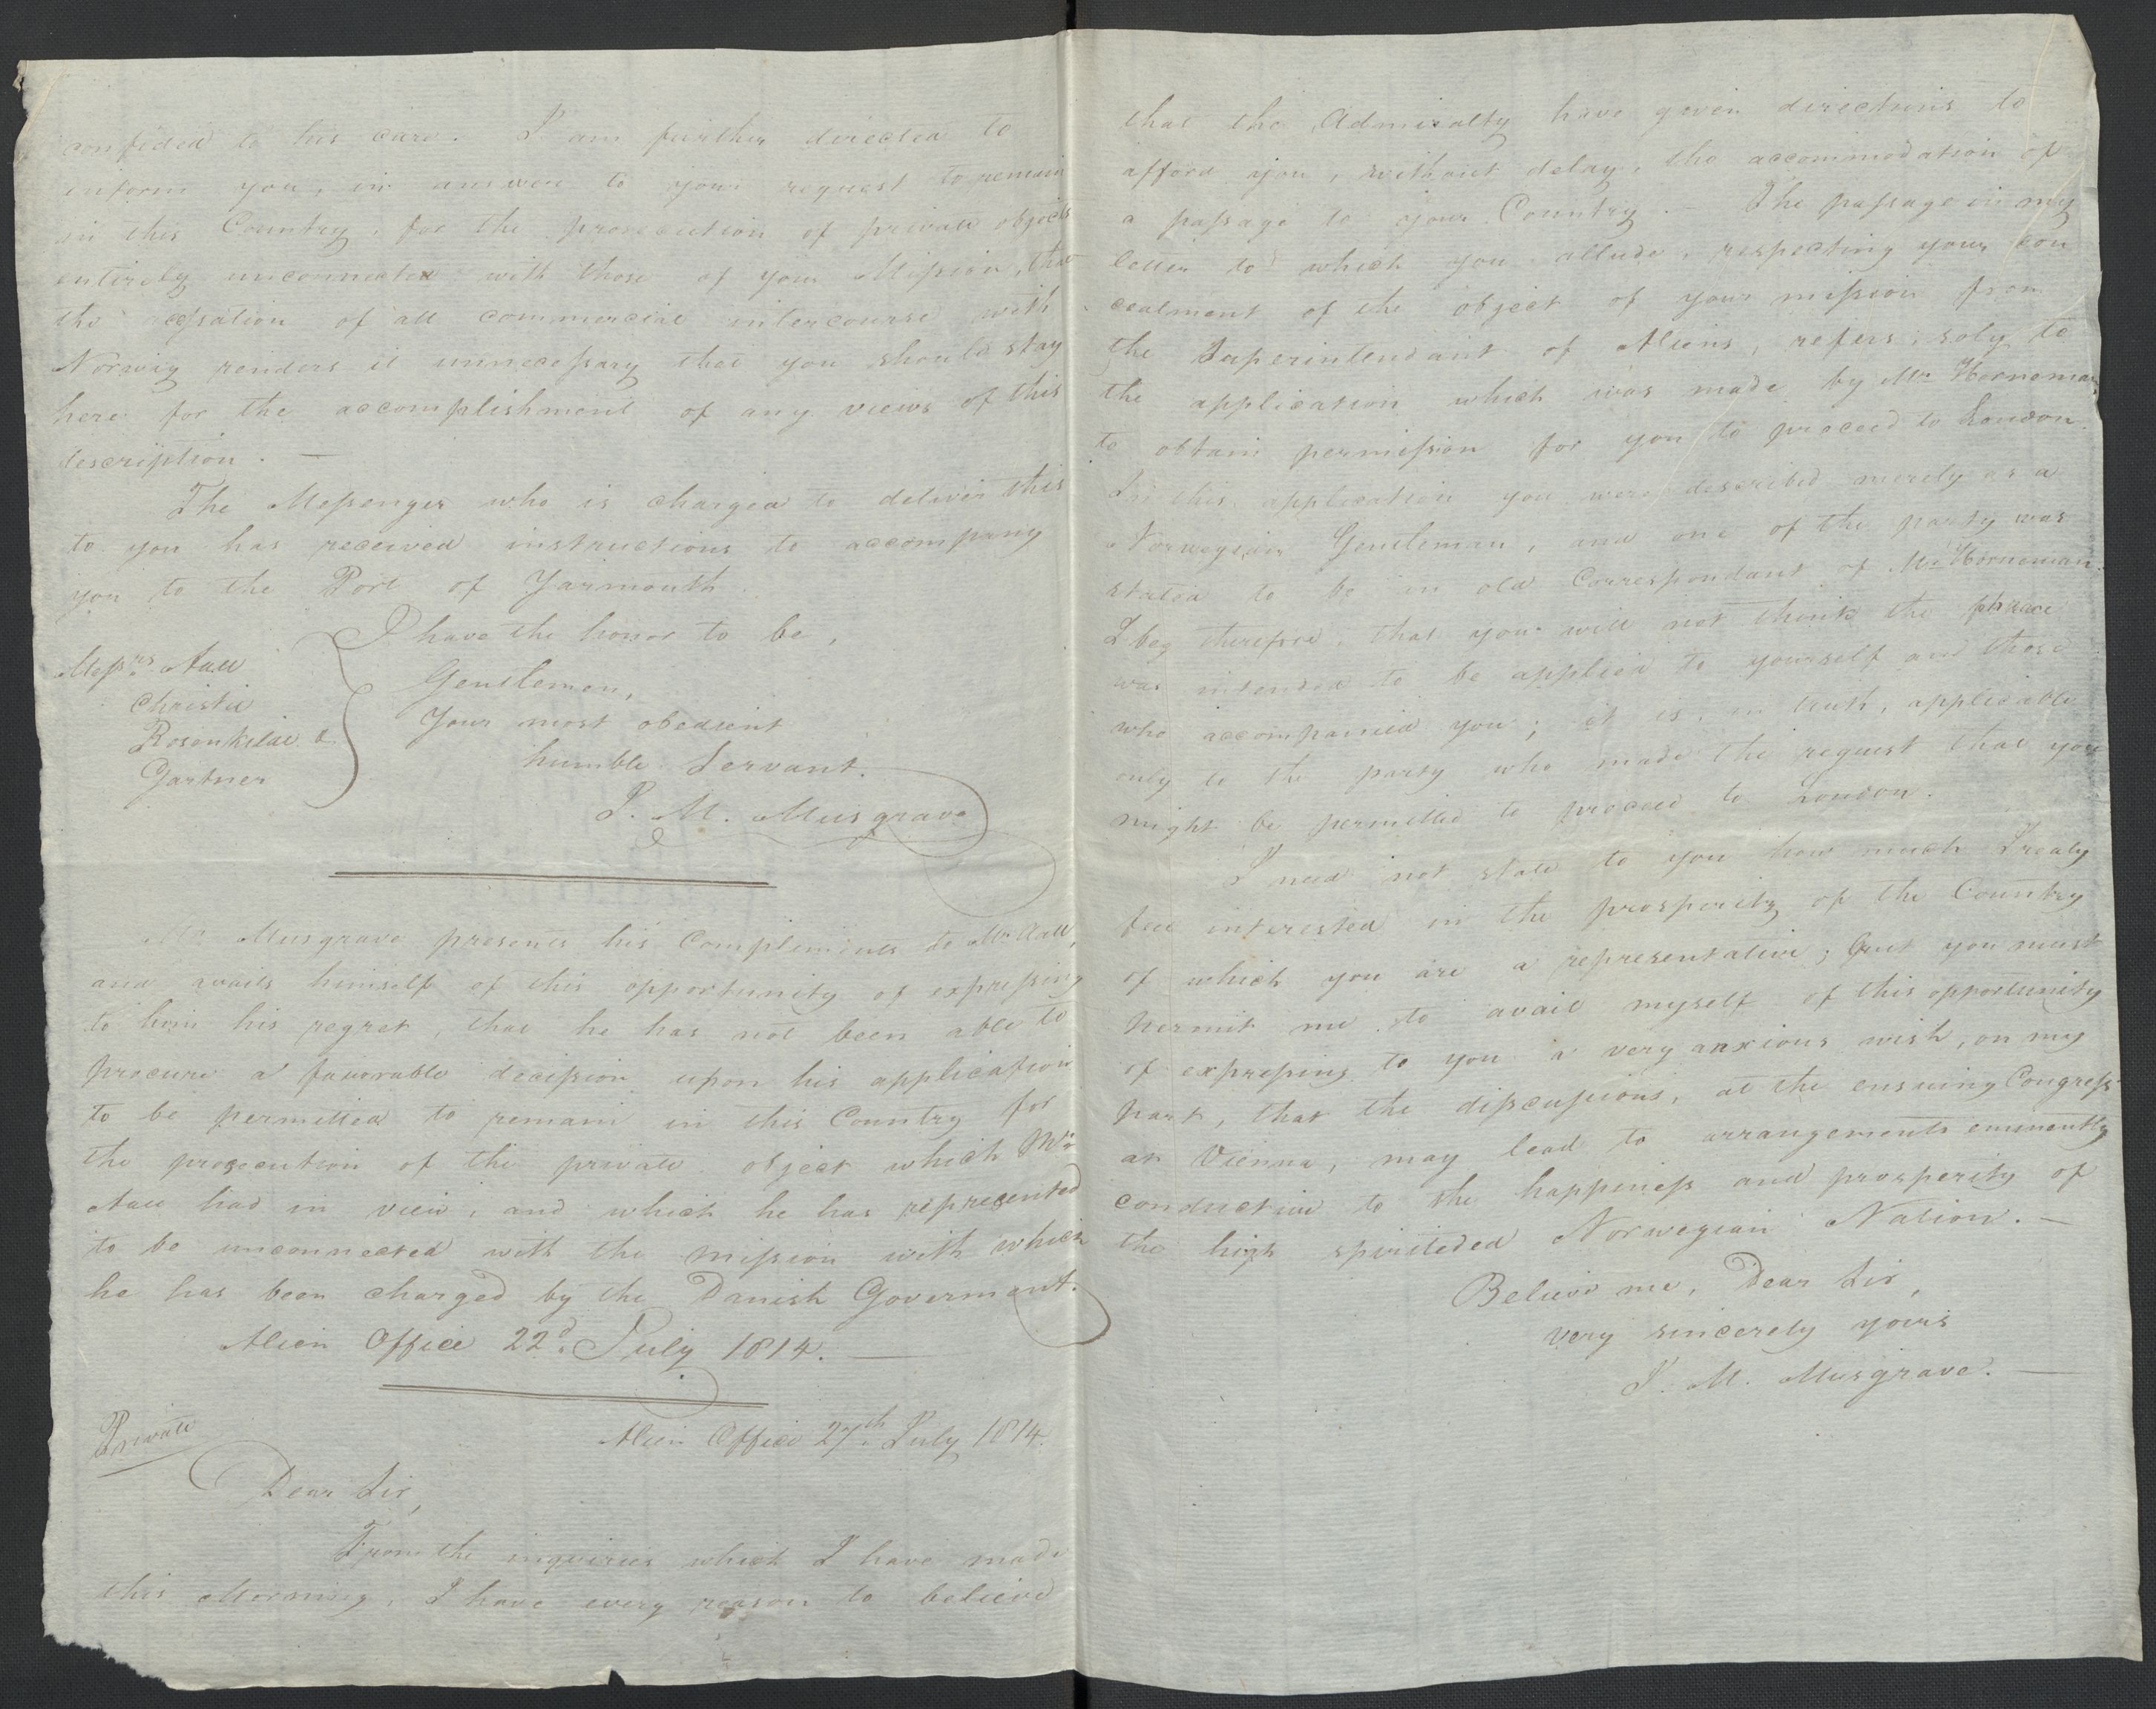 confided to his care. I am further directed to
inform you, in answer to your request to remain
in this Country, for the prosecution of private objects
entirely unconnected with those of your Mission, that
the cessation of all commercial intercourse with
Norway renders it unnecessary that you should stay
here for the accomplishment of any views of this
description. —
The Messenger who is charged to deliver this
to you has received instructions to accompany
you to the Port of Yarmouth.
I have the honor to be,
Gentlemen,
Your most obedient
humble Servant.
Messrs Aall
Christie
Rosenkilde &
Gartner
P. M. Musgrave
Mr Musgrave presents his Compliments to Mr Aall,
and avails himself of this opportunity of expressing
to him his regret, that he has not been able to
procure a favorable decission upon his application
to be permitted to remain in this Country for
the prosecution of the private object which Mr
Aall had in view, and which he has represented
to be unconnected with the mission with which
he has been charged by the Danish Goverment.
Alien Office 22d July 1814. —
Private
Alien Office 27th July 1814.
Dear Sir,
From the inquiries which I have made
this Morning, I have every reason to believe
that the Admiralty have given directions to
afford you, without delay, the accommodation of
a passage to your Country. — The passage in my
letter to which you allude, respecting your con
cealment of the object of your mission from
the Superintendant of Aliens, refers soly to
the application which was made by Mr Horneman
to obtain permission for you to proceed to London.
In this application you were described merely as a
Norwegian Gentleman, and one of the party was
stated to be an old Correspondant of Mr Horneman.
I beg therefore, that you will not think the phrase
was intended to be applied to yourself and those
who accompanied you; it is, in truth, applicable
only to the party who made the request that you
might be permitted to proceed to London.
I need not state to you how much I realy
feel interested in the prosperity of the Country
of which you are a representative; but you must
permit me to avail myself of this opportunity
of expressing to you a very anxious wish, on my
part, that the discussions, at the ensuing Congress
at Vienna, may lead to arrangements eminently
conductive to the happiness and prosperity of
the high spiriteded Norwegian Nation. —
Believe me, Dear Sir,
very sincerely yours
P. M. Musgrave. —